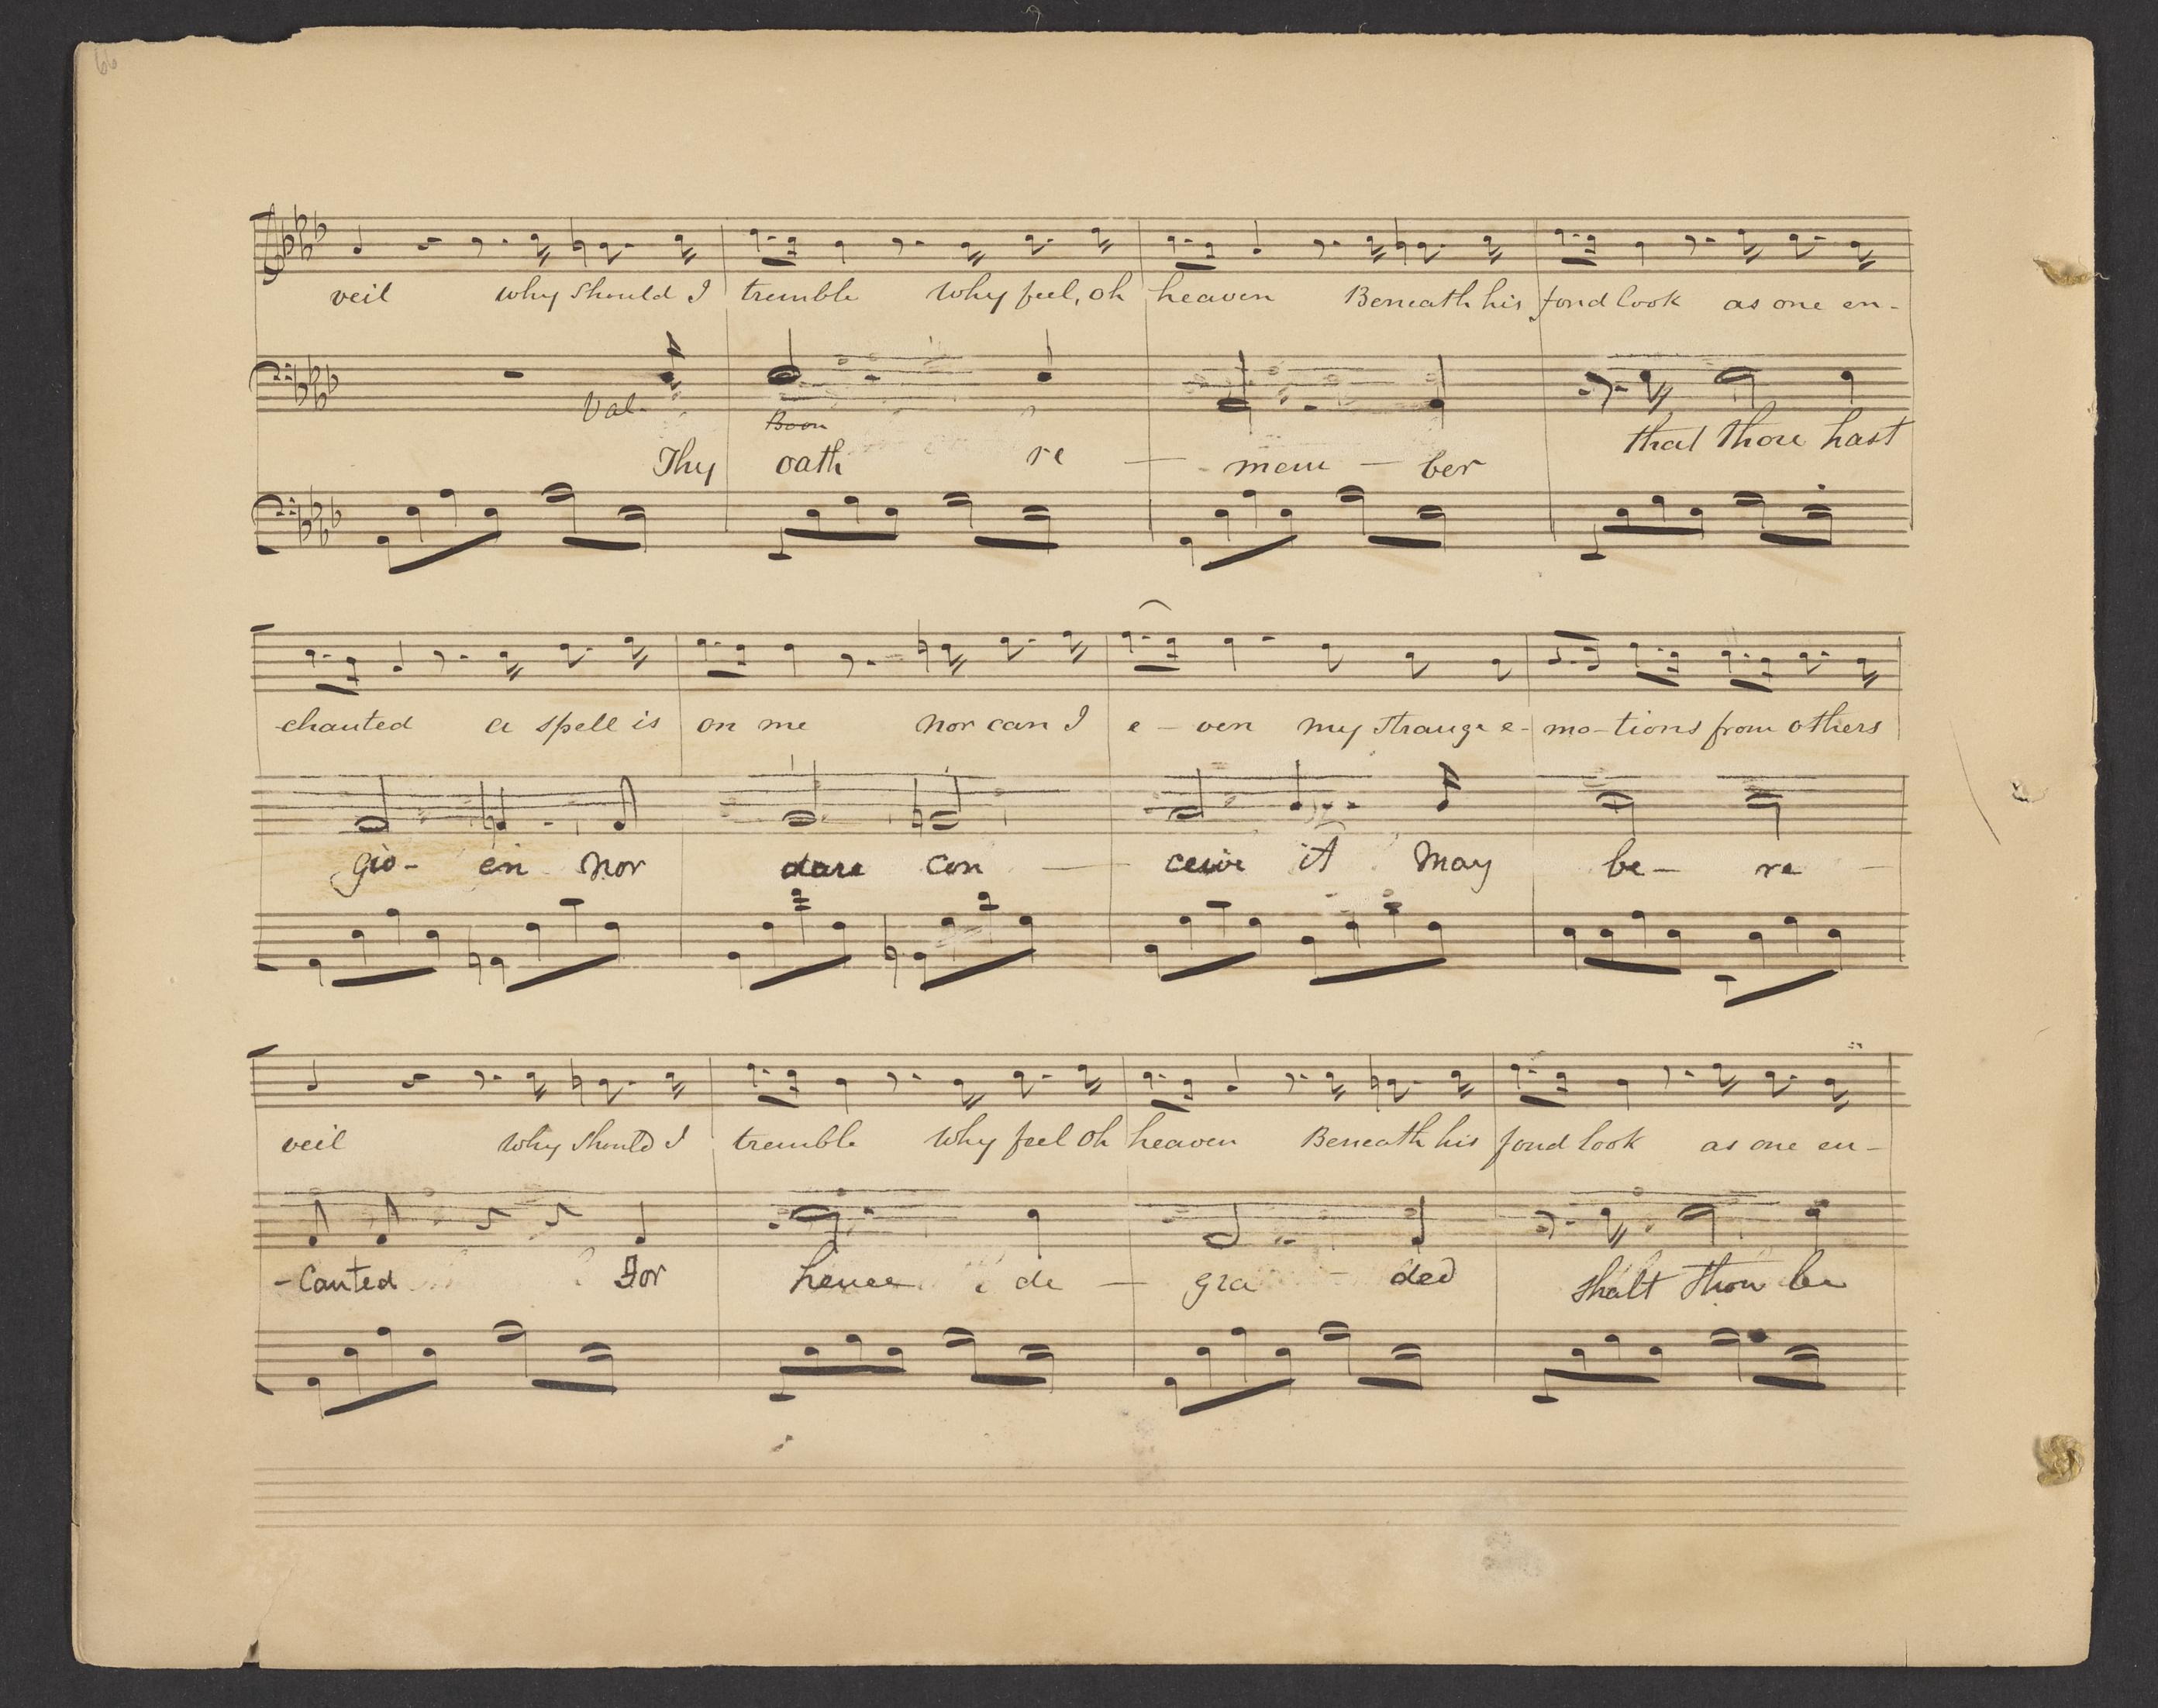 66
veil why should I tremble why feel, oh heaven Beneath his fond look as one en-
Val. Boon
Thy oath re — mem — ber that thou hast
-chanted a spell is on me nor can I e - ven my strange e - mo - tions from others
giv- en nor dare con — ceive it May be - re -
veil why should I tremble why feel oh heaven Beneath his fond look as one en-
-Canted For hence de — gra - ded shalt thou be